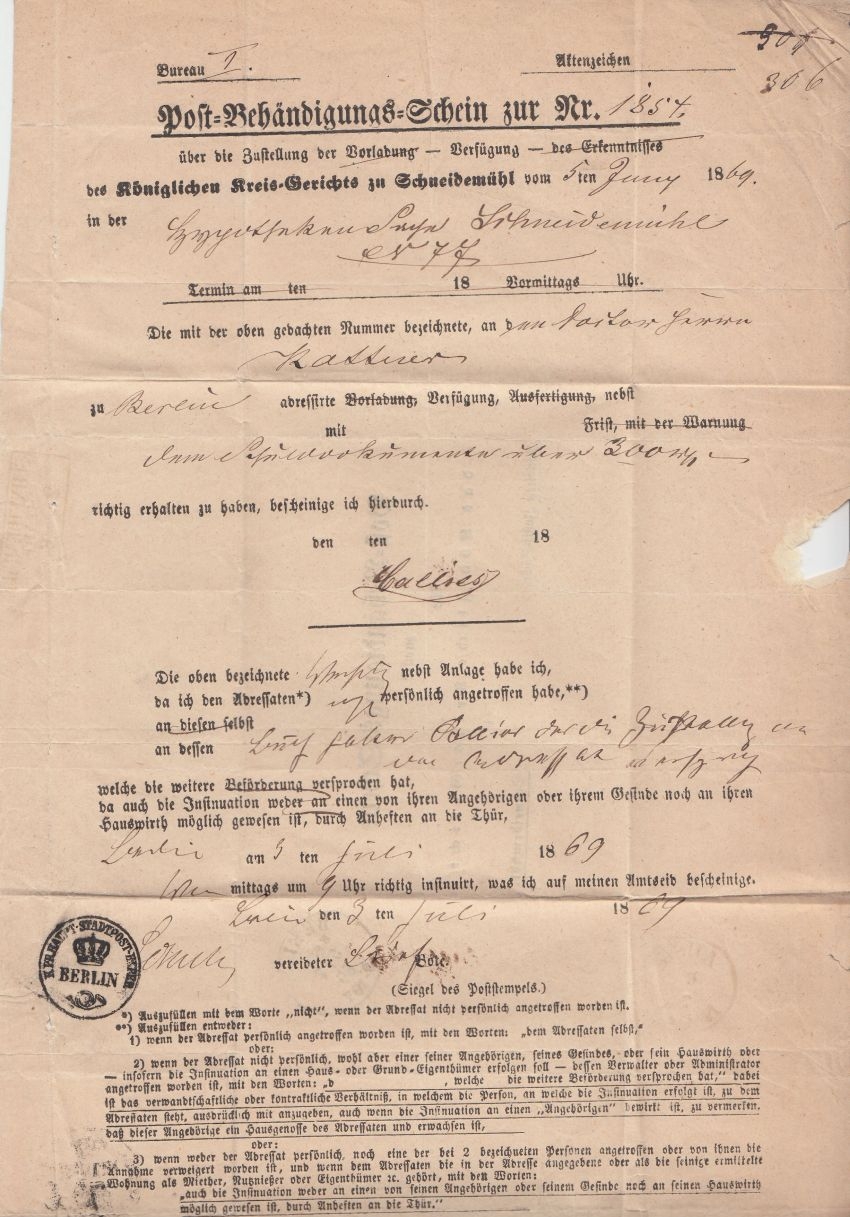 304
306
Bureau I.
Aktenzeichen
Post-Behändigungs-Schein zur Nr. 1854.
über die Zustellung der Vorladung — Verfügung — des Erkenntnisses
des Königlichen Kreis-Gerichts zu Schneidemühl vom 5ten Juny 1869.
in der Hypotheken Sache Schneidemühl
No 77
Termin am ten 18 Vormittags Uhr.
Die mit der oben gedachten Nummer bezeichnete, an den Doctor Herrn
Kattner
zu Berlin adressirte Vorladung, Verfügung, Ausfertigung, nebst
mit Frist, mit der Warnung
dem Schulddokumente über 300
richtig erhalten zu haben, bescheinige ich hierdurch.
den ten 18
Die oben bezeichnete nebst Anlage habe ich,
da ich den Adressaten*) persönlich angetroffen habe,**)
an diesen selbst
an dessen der die Zustellung an
den Adressat
welche die weitere Beförderung versprochen hat,
da auch die Insinuation weder an einen von ihren Angehörigen oder ihrem Gesinde noch an ihren
Hauswirth möglich gewesen ist, durch Anheften an die Thür,
Berlin am 3 ten Juli 1869
mittags um 9 Uhr richtig insinuirt, was ich auf meinen Amtseid bescheinige.
Berlin den 3 ten Juli 1869
vereideter Brief Bote.
K. PR. HAUPT-STADTPOST-EXPED.
BERLIN
(Siegel des Poststempels.)
*) Auszufüllen mit dem Worte „nicht", wenn der Adressat nicht persönlich angetroffen worden ist.
**) Auszufüllen entweder:
1) wenn der Adressat persönlich angetroffen worden ist, mit den Worten: „dem Adressaten selbst,"
oder:
2) wenn der Adressat nicht persönlich, wohl aber einer seiner Angehörigen, seines Gesindes, oder sein Hauswirth oder
— insofern die Insinuation an einen Haus- oder Grund-Eigenthümer erfolgen soll — dessen Verwalter oder Administrator
angetroffen worden ist, mit den Worten: „d , welche die weitere Beförderung versprochen hat," dabei
ist das verwandtschaftliche oder kontraktliche Verhältniß, in welchem die Person, an welche die Insinuation erfolgt ist, zu dem
Adressaten steht, ausdrücklich mit anzugeben, auch wenn die Insinuation an einen „Angehörigen" bewirkt ist, zu vermerken,
daß dieser Angehörige ein Hausgenosse des Adressaten und erwachsen ist,
oder:
3) wenn weder der Adressat persönlich, noch eine der bei 2 bezeichneten Personen angetroffen oder von ihnen die
Annahme verweigert worden ist, und wenn dem Adressaten die in der Adresse angegebene oder als die seinige ermittelte
Wohnung als Miether, Nutznießer oder Eigenthümer ꝛc. gehört, mit den Worten:
„auch die Insinuation weder an einen von seinen Angehörigen oder seinem Gesinde noch an seinen Hauswirth
möglich gewesen ist, durch Anheften an die Thür."